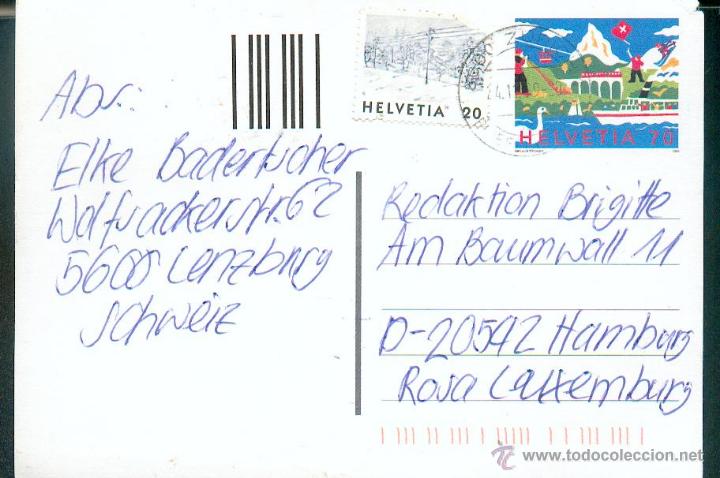 Abs.:
Elke Badertscher
Wolfsackerstr. 62
5600 Lenzburg
Schweiz
HELVETIA 20
HELVETIA 70
Redaktion Brigitte
Am Baumwall 11
D-20542 Hamburg
Rosa Luxemburg
www.todocoleccion.net